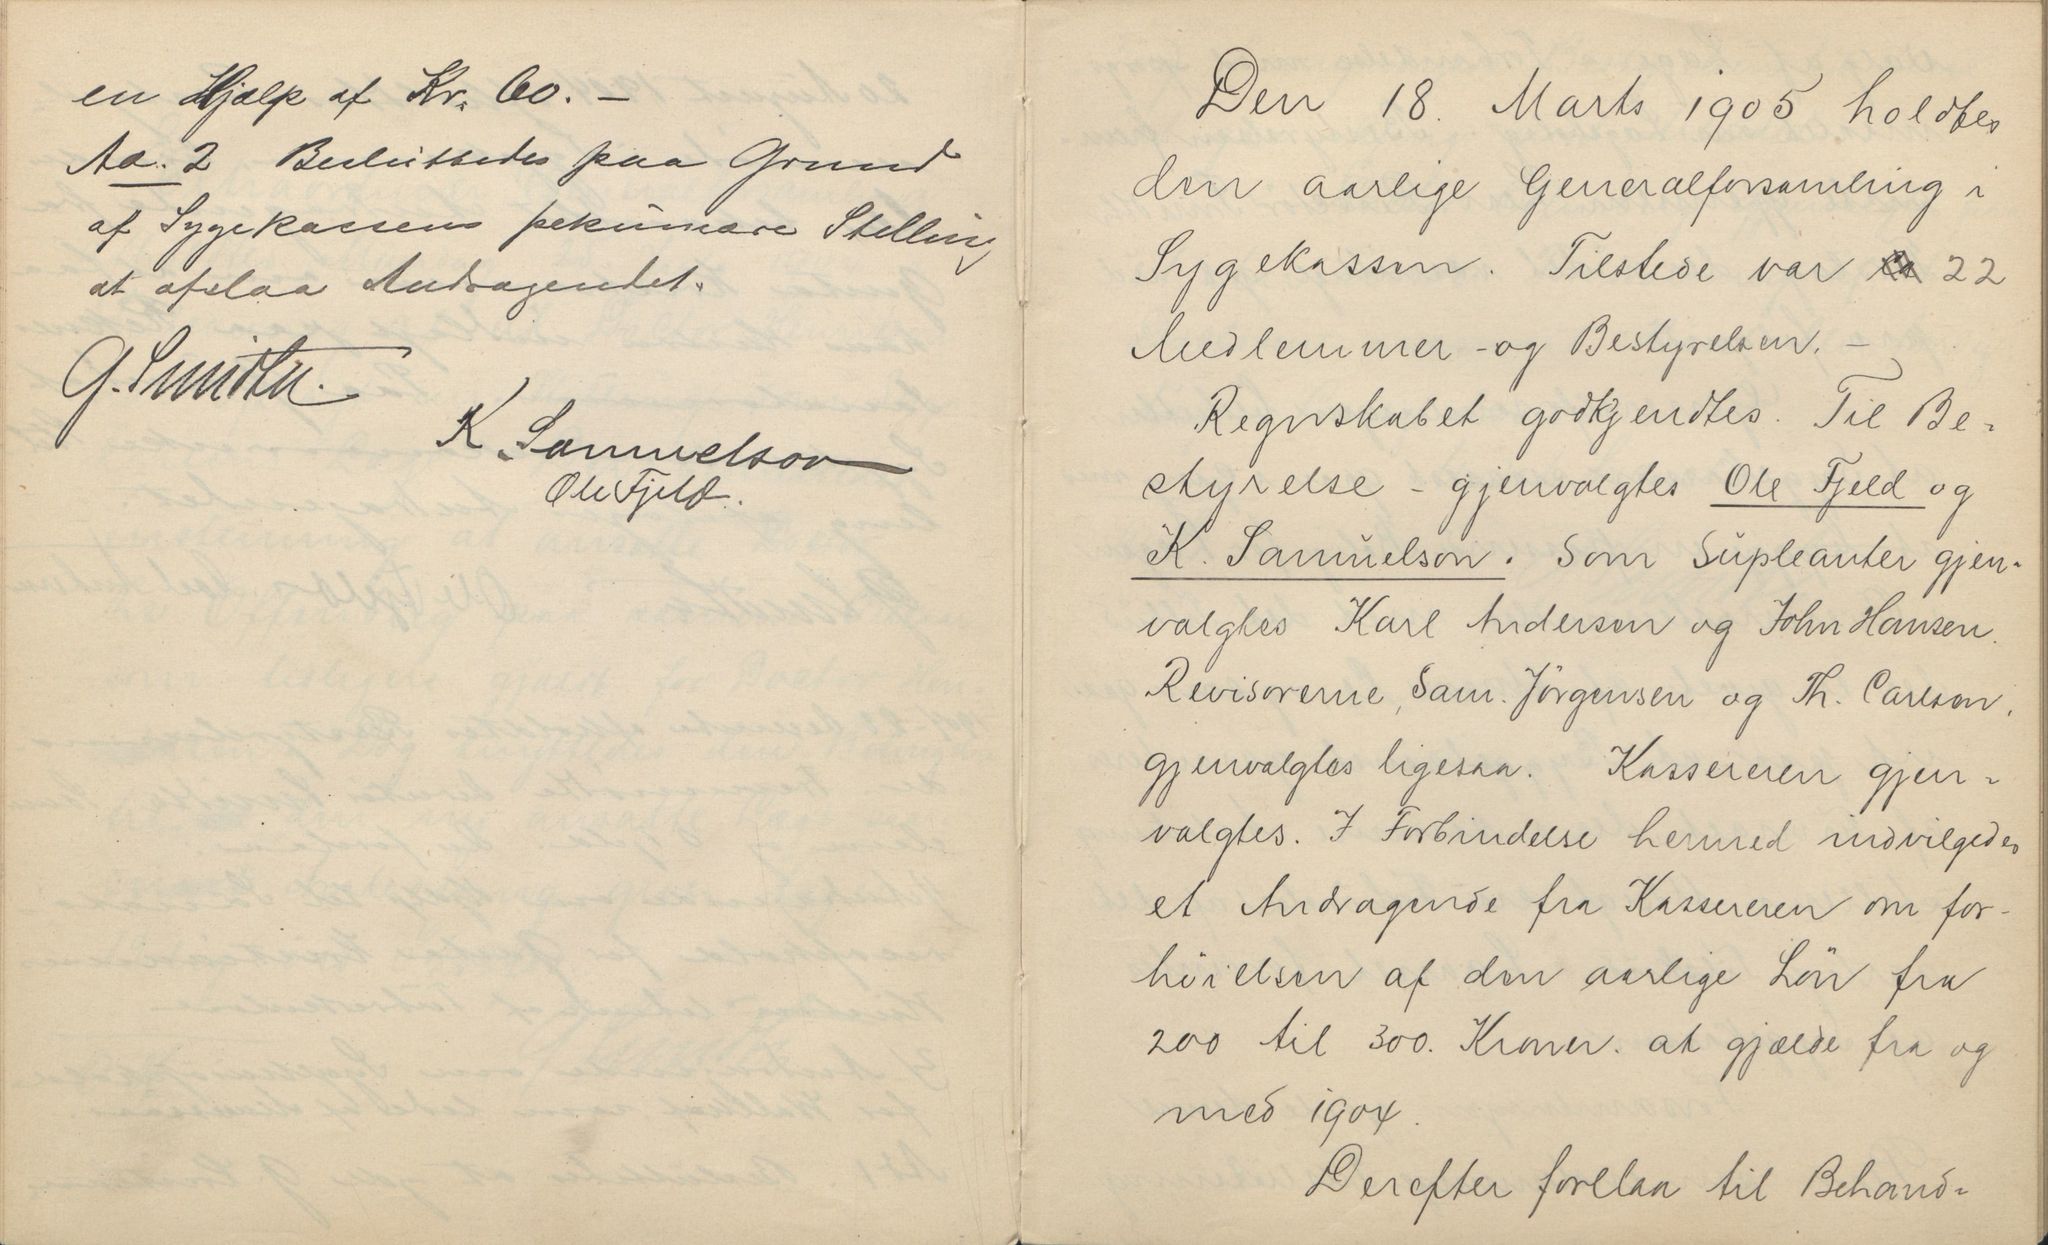 en Hjælp af Kr. 60. –
Ad. 2 Besluttedes paa Grund
af Sygekassens pekuniære Stelling
at afslaa Andragendet.
G. Smidth.
K. Samuelson
Ole Fjeld.
Den 18. Marts 1905 holdtes
den aarlige Generalforsamling i
Sygekassen. Tilstede var 22
Medlemmer – og Bestyrelsen. –
Regnskabet godkjendtes. Til Be-
styrelse – gjenvalgtes Ole Fjeld og
K. Samuelson. Som Supleanter gjen-
valgtes Karl Andersen og John Hansen.
Revisorerne, Sam. Jörgensen og Th. Carlson,
gjenvalgtes ligesaa. Kassereren gjen-
valgtes. I Forbindelse hermed indvilgedes
et Andragende fra Kassereren om for-
höielsen af den aarlige Lön fra
200 til 300. Kroner. at gjælde fra og
med 1904.
Derefter forelaa til Behand-